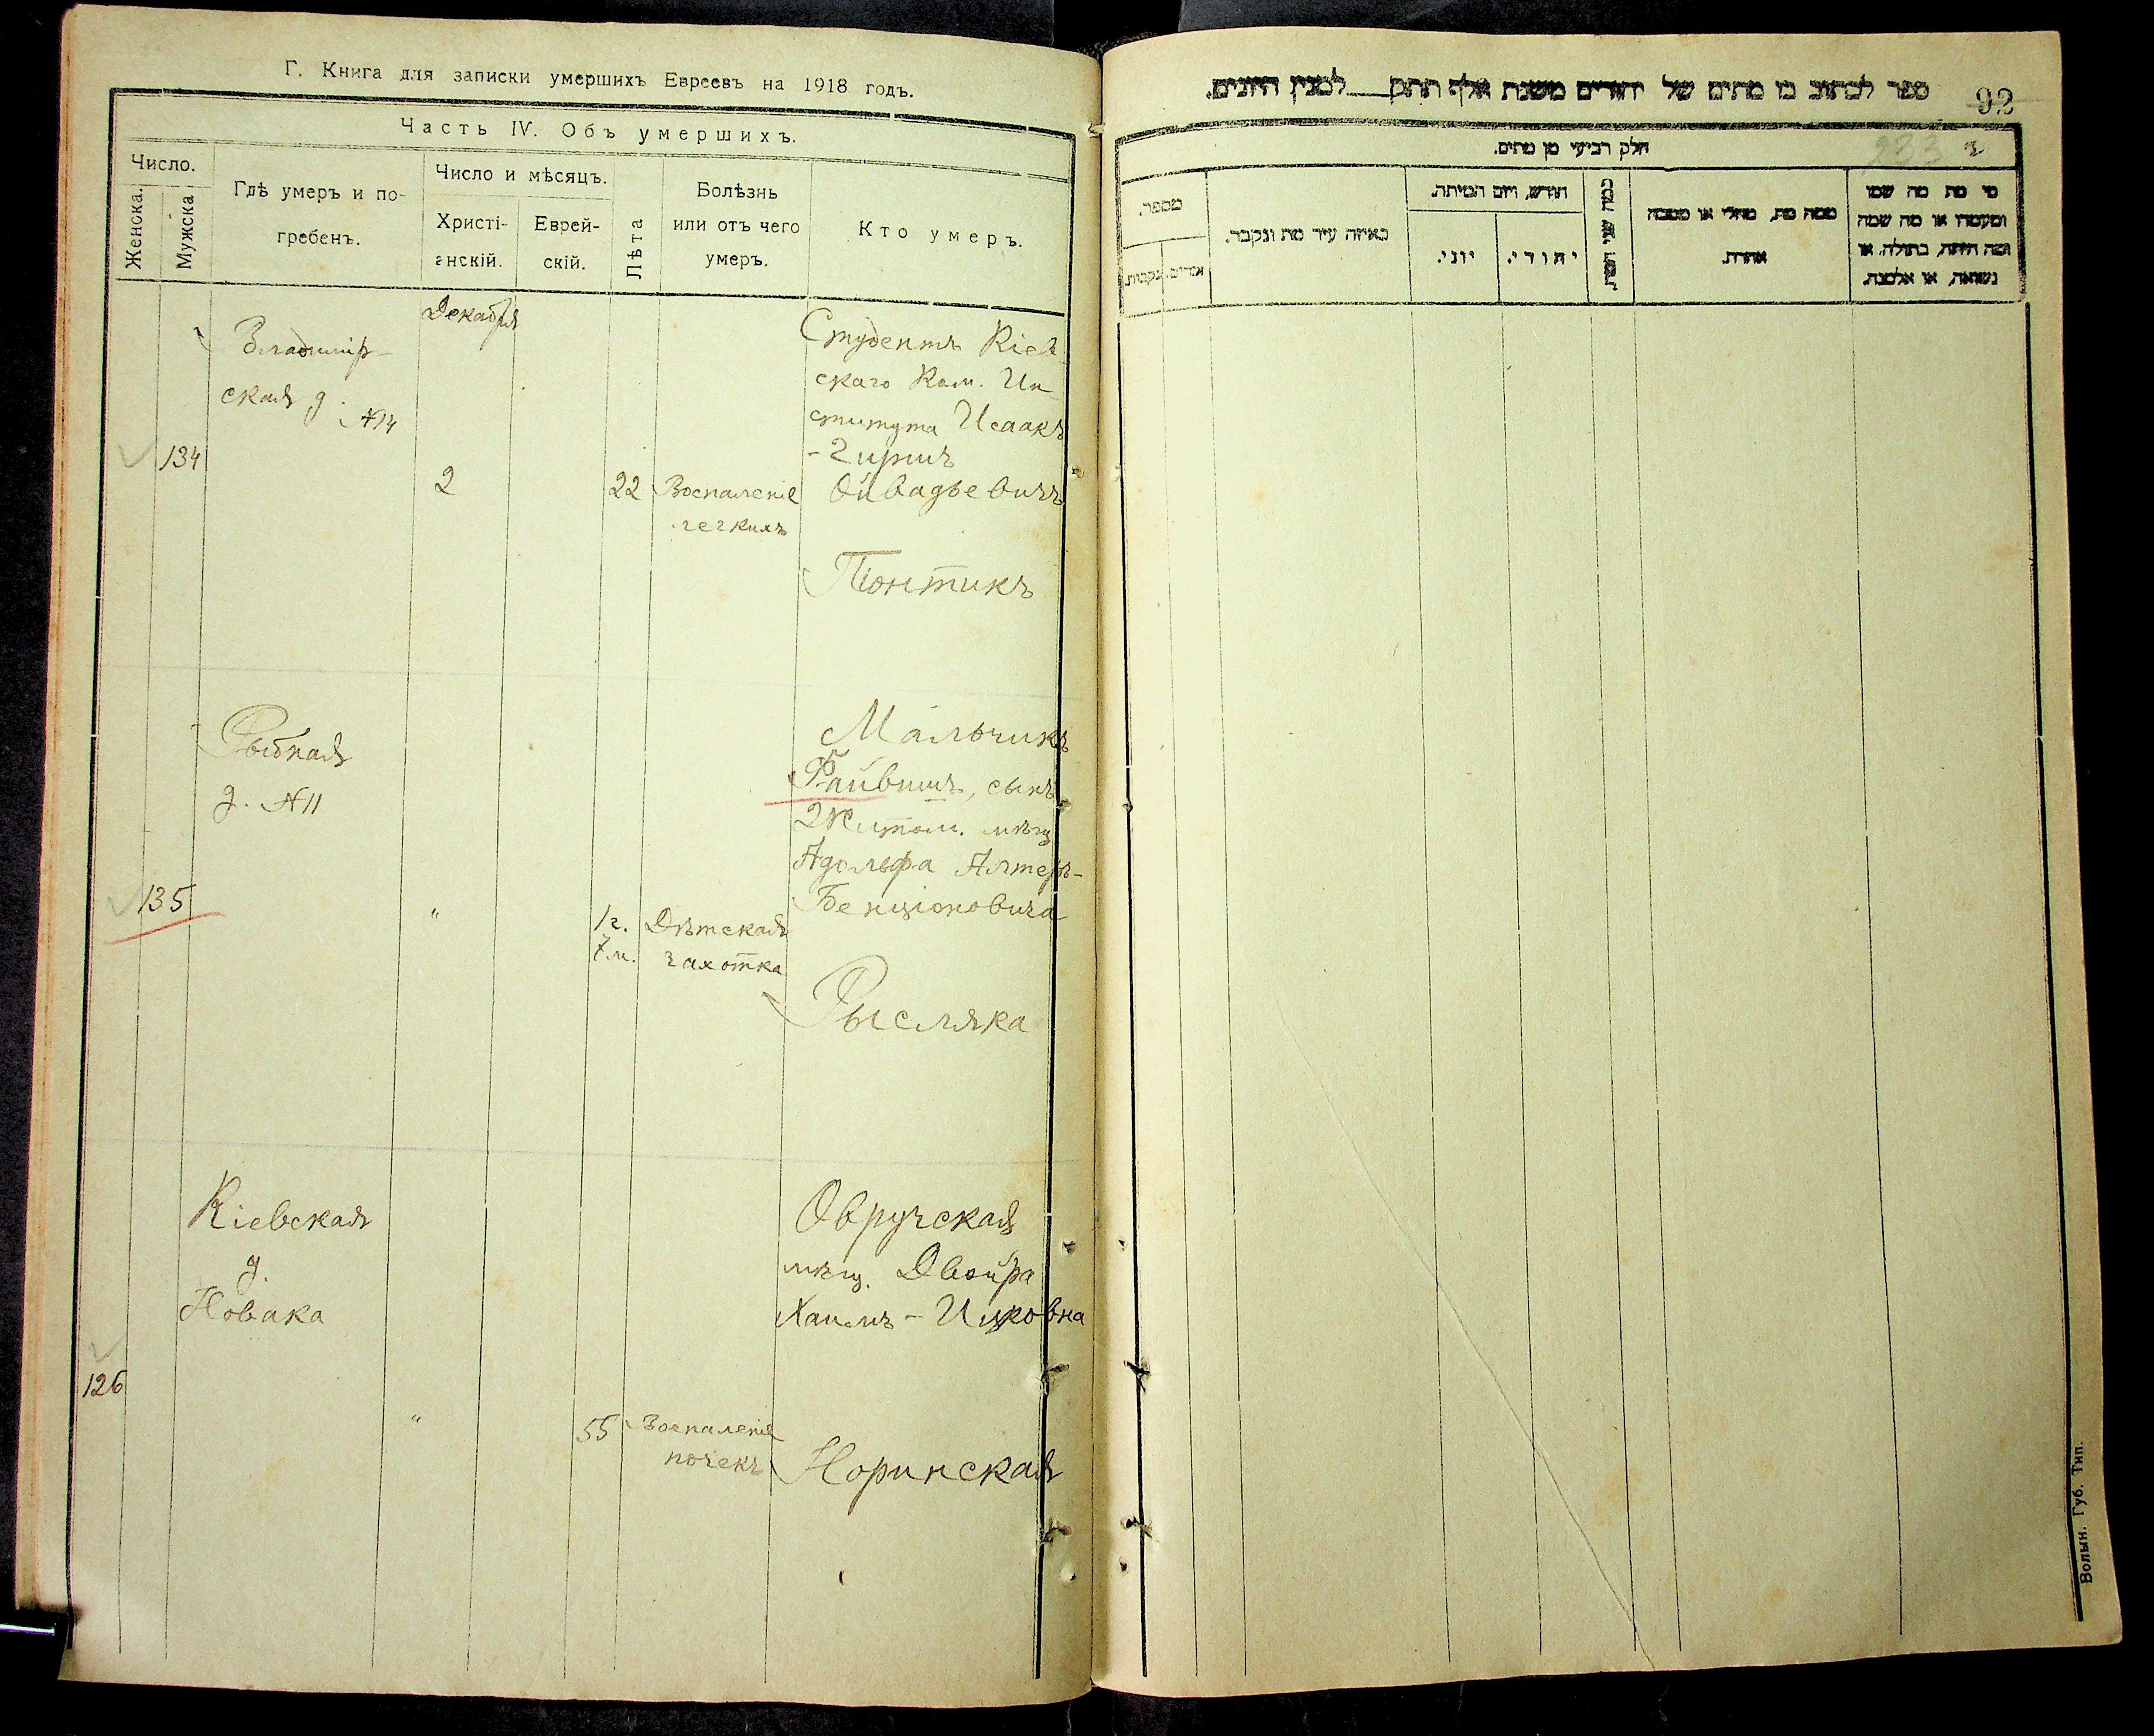 Г. Книга для записки умершихъ Евреевъ на 1918 годъ.
Часть IV. Объ умершихъ.
Число.
Женска.
Мужска
Гдѣ умеръ и по-
гребенъ.
Число и мѣсяцъ.
Христі-
анскій.
Еврей-
скій.
Лѣта
Болѣзнь
или отъ чего
умеръ.
Кто умеръ.
Декабря
134
Владимір-
ская д.
№14
2
22
Воспаленіе
легкихъ
Студентъ Кіев
скаго Ком. Ин
ститута Исаакъ
-Гиршъ
Овадьевичъ
Піонтикъ
135
Рыбная
д. №11
"
1г.
7м.
Дѣтская
чахотка
Мальчикъ
Файвишъ, сынъ
Житом. мѣщ
Адольфа Алтеръ-
Бенціоновича
Рысляка
126
Кіевская
д.
Новака
"
55
Воспаленіе
почекъ
Овручская
мѣщ. Двойра
Хаимъ-Ицковна
Норинская
ספר לכתוב בו מתים של יהודים משנת אלף תתק למנין היונים.
92
233
חלק רביעי מן מתים.
מי מת מה שמו
ומעמדו או מה שמה
ומה היתה, בתולה, או
נשואה, או אלמנה.
ממה מת, מחלי או מסבה
אחרת.
כמה שני המת.
חודש, ויום המיתה.
יהודי.
יוני.
באיזה עיר מת ונקבר.
מספר.
זכרים.
נקבות.
Волын. Губ. Тип.